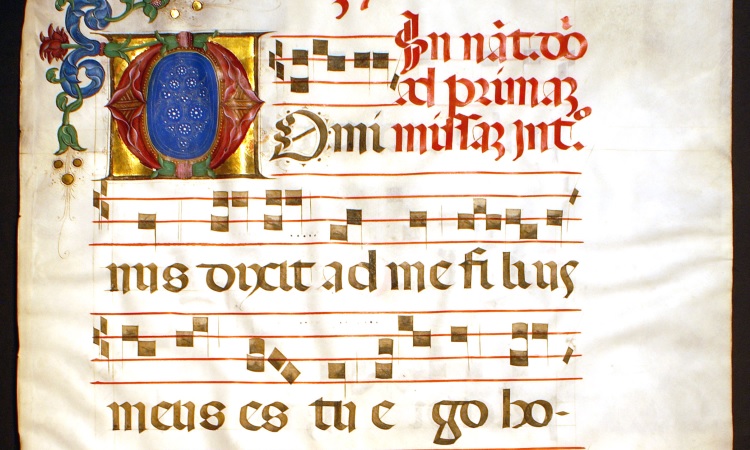 In nat. dō
ad primaz
Domi missaz Int.º
nus dixit ad me filius
meus es tu e go ho-